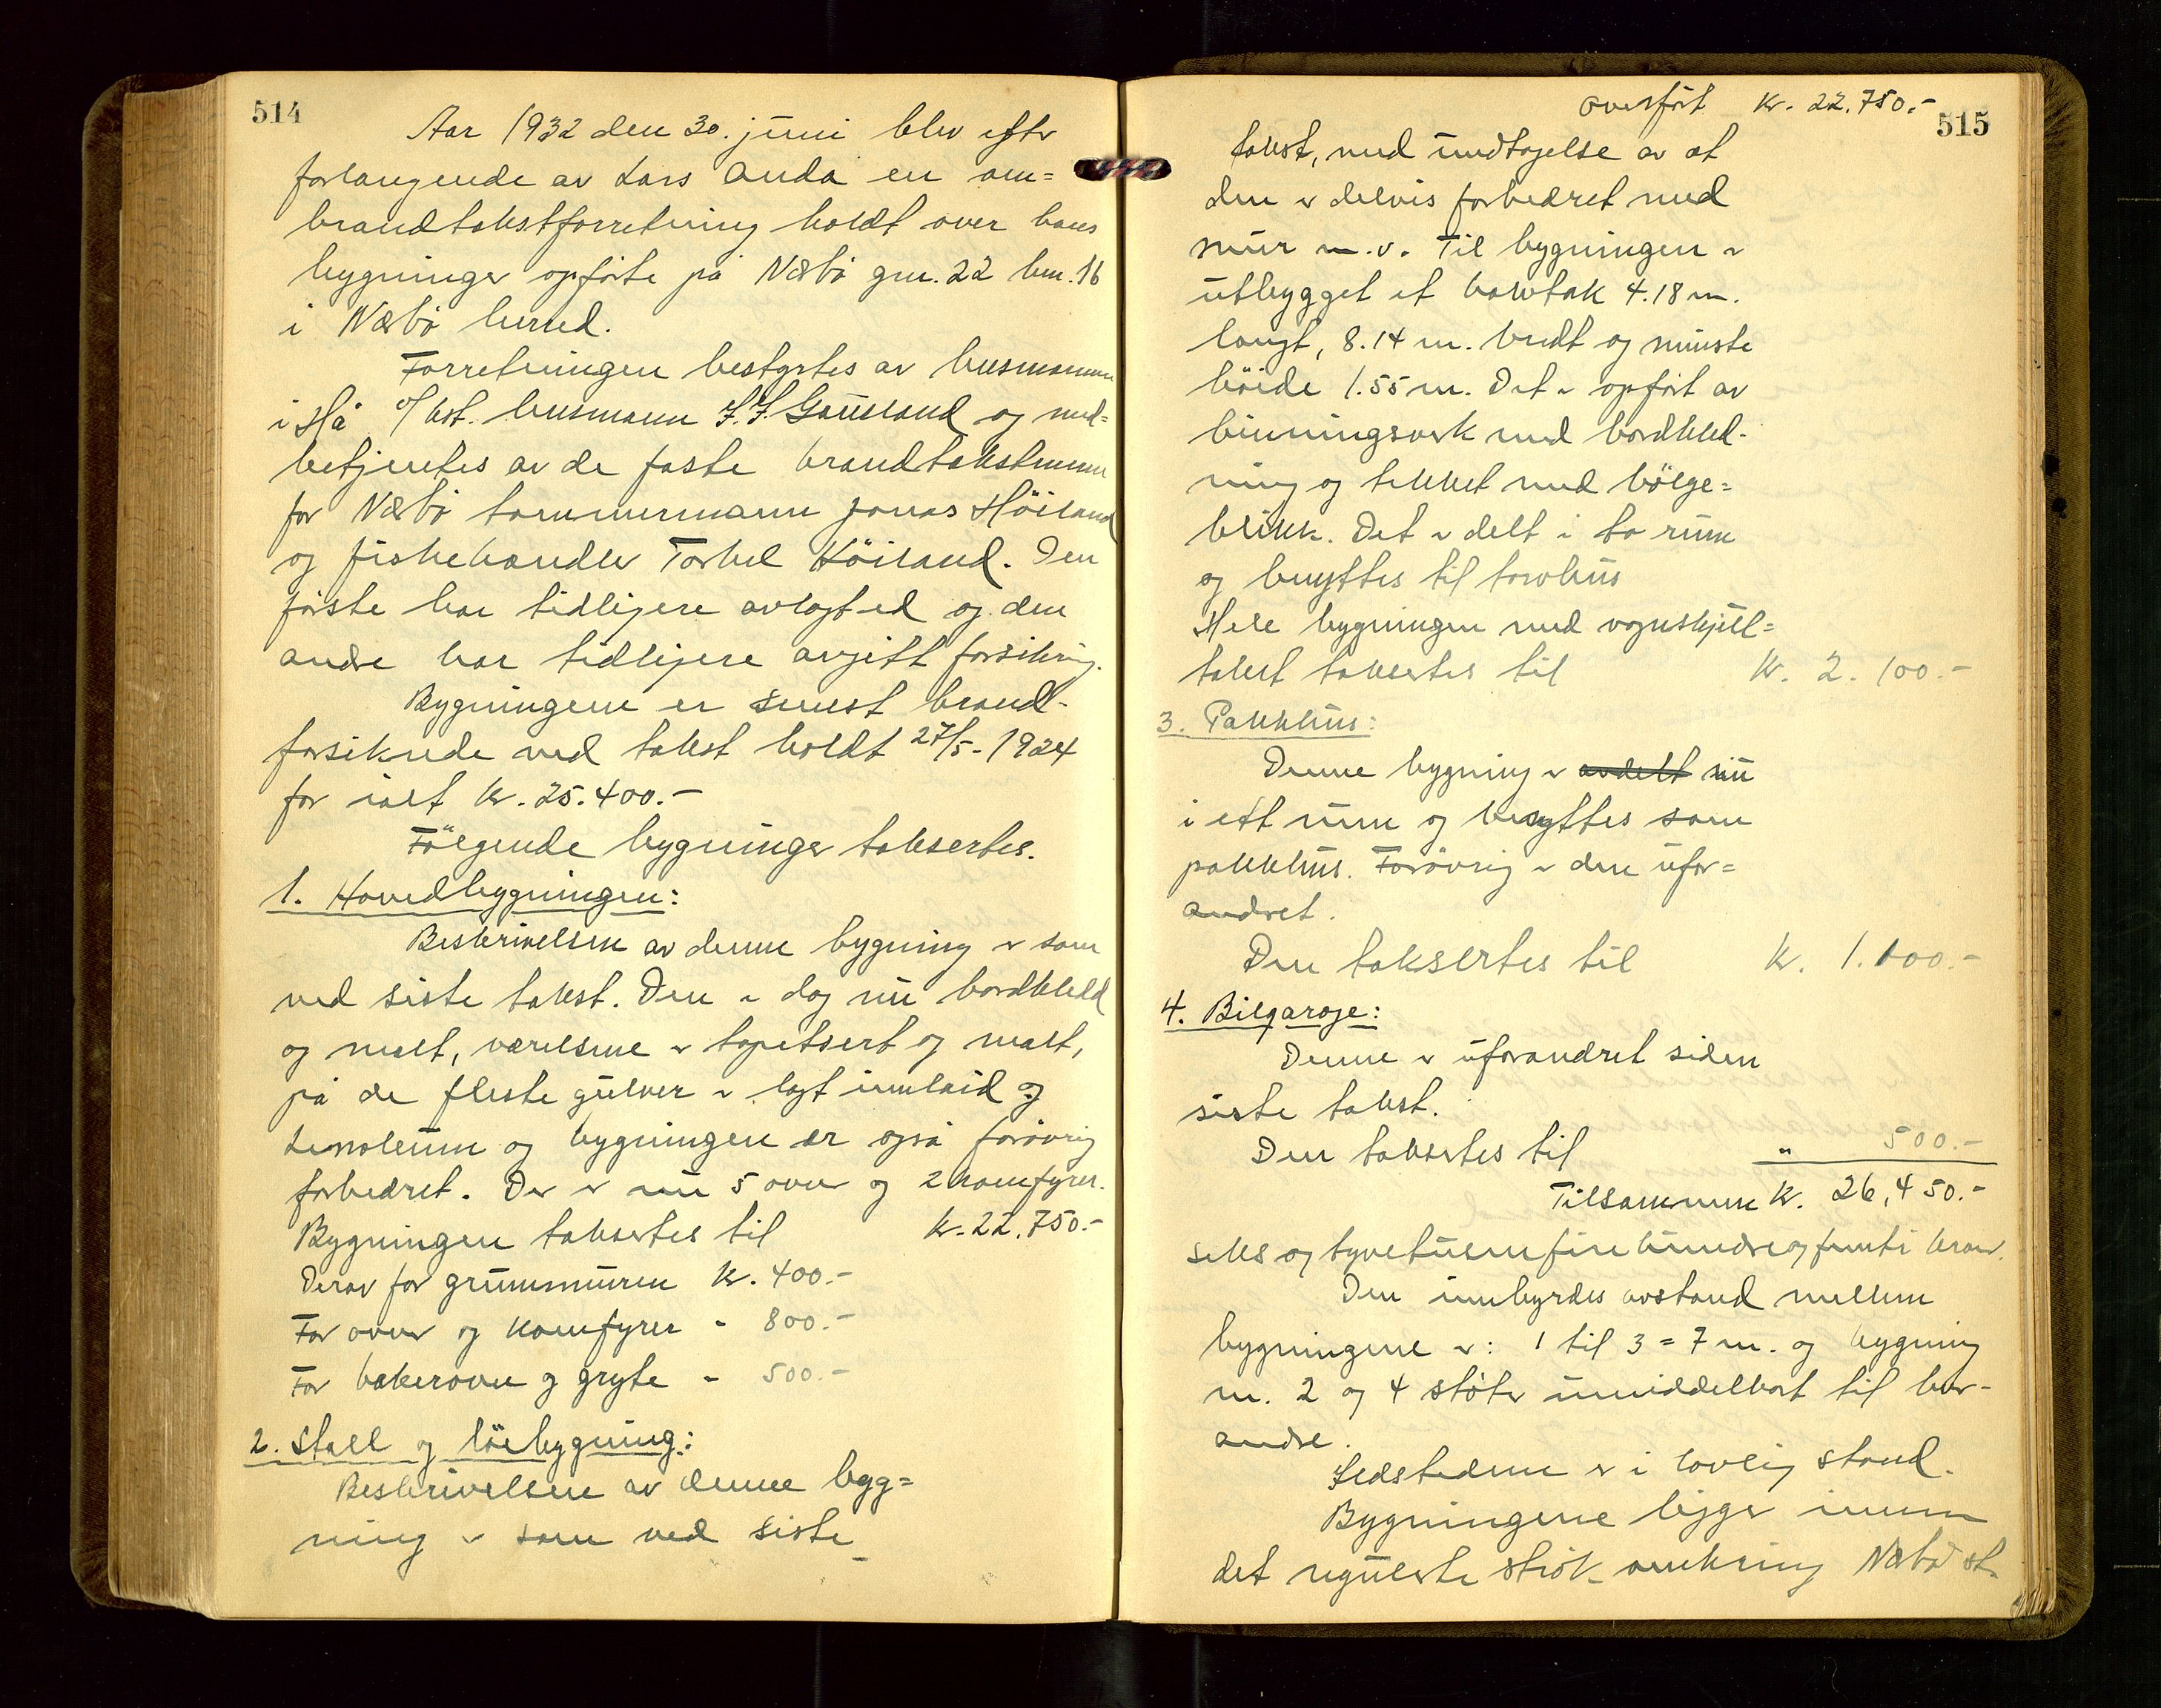 514
Aar 1932 den 30. juni blev efter
forlangende av Lars Anda en om=
brandtakstforretning holdt over hans
bygninger opførte på Nærbø gnr. 22 bnr. 16
i Nærbø herred.
Forretningen bestyrtes av lensmannen
i Hå o/ bst. lensmann J. J. Gausland og med=
betjentes av de faste brandtakstmenn
for Nærbø tømmermann Jonas Höiland
og fiskehandler Torkel Höiland. Den
første har tidligere avlagt ed og den
andre har tidligere avgitt forsikring.
Bygningene er senest brand-
forsikrede ved takst holdt 27/5-1924
for ialt kr. 25.400.-
Fölgende bygninger taksertes.
1. Hovedbygningen:
Beskrivelsen av denne bygning er som
ved siste takst. Den er dog nu bordkledd
og malt, værelsene er tapetsert og malt,
på de fleste gulver er lagt innlaid og
Linoleum og bygningen er også forøvrig
forbedret. Der er nu 5 ovner og 2 komfyrer.
Bygningen taksertes til kr. 22.750.-
Derav for grunnmuren kr. 400.-
For ovner og komfyrer " 800.-
For bakerovn og gryte " 500.-
2. Stall og löebygning:
Beskrivelsen av denne bygg=
ning er som ved siste
515
Overført kr. 22.750.-
takst, med undtagelse av at
den er delvis forbedret med
mur m.v. Til bygningen er
utbygget et halvtak 4.18 m.
langt, 8.14 m. bredt og minste
höide 1.55 m. Det er opført av
binningsverk med bordkled-
ning og tekket med bölge=
blikk. Det er delt i to rum
og benyttes til torvhus
Hele bygningen med vognskjul=
takst taksertes til kr. 2.100.-
3. Pakkhus:
Denne bygning er avdelt nu
i ett rum og benyttes som
pakkhus. Forøvrig er den ufor=
andret.
Den taksertes til kr. 1.100.-
4. Bilgarage:
Denne er uforandret siden
siste takst.
Den taksertes til " 500.-
Tilsammen kr. 26,450.-
seks og tyvetusenfirehundreogfemti kroner.
Den innbyrdes avstand mellem
bygningene er: 1 til 3 = 7 m. og bygning
nr. 2 og 4 støter umiddelbart til hver-
andre.
Ildstedene er i lovlig stand.
Bygningene ligger innen
det regulerte strøk omkring Nærbø st.